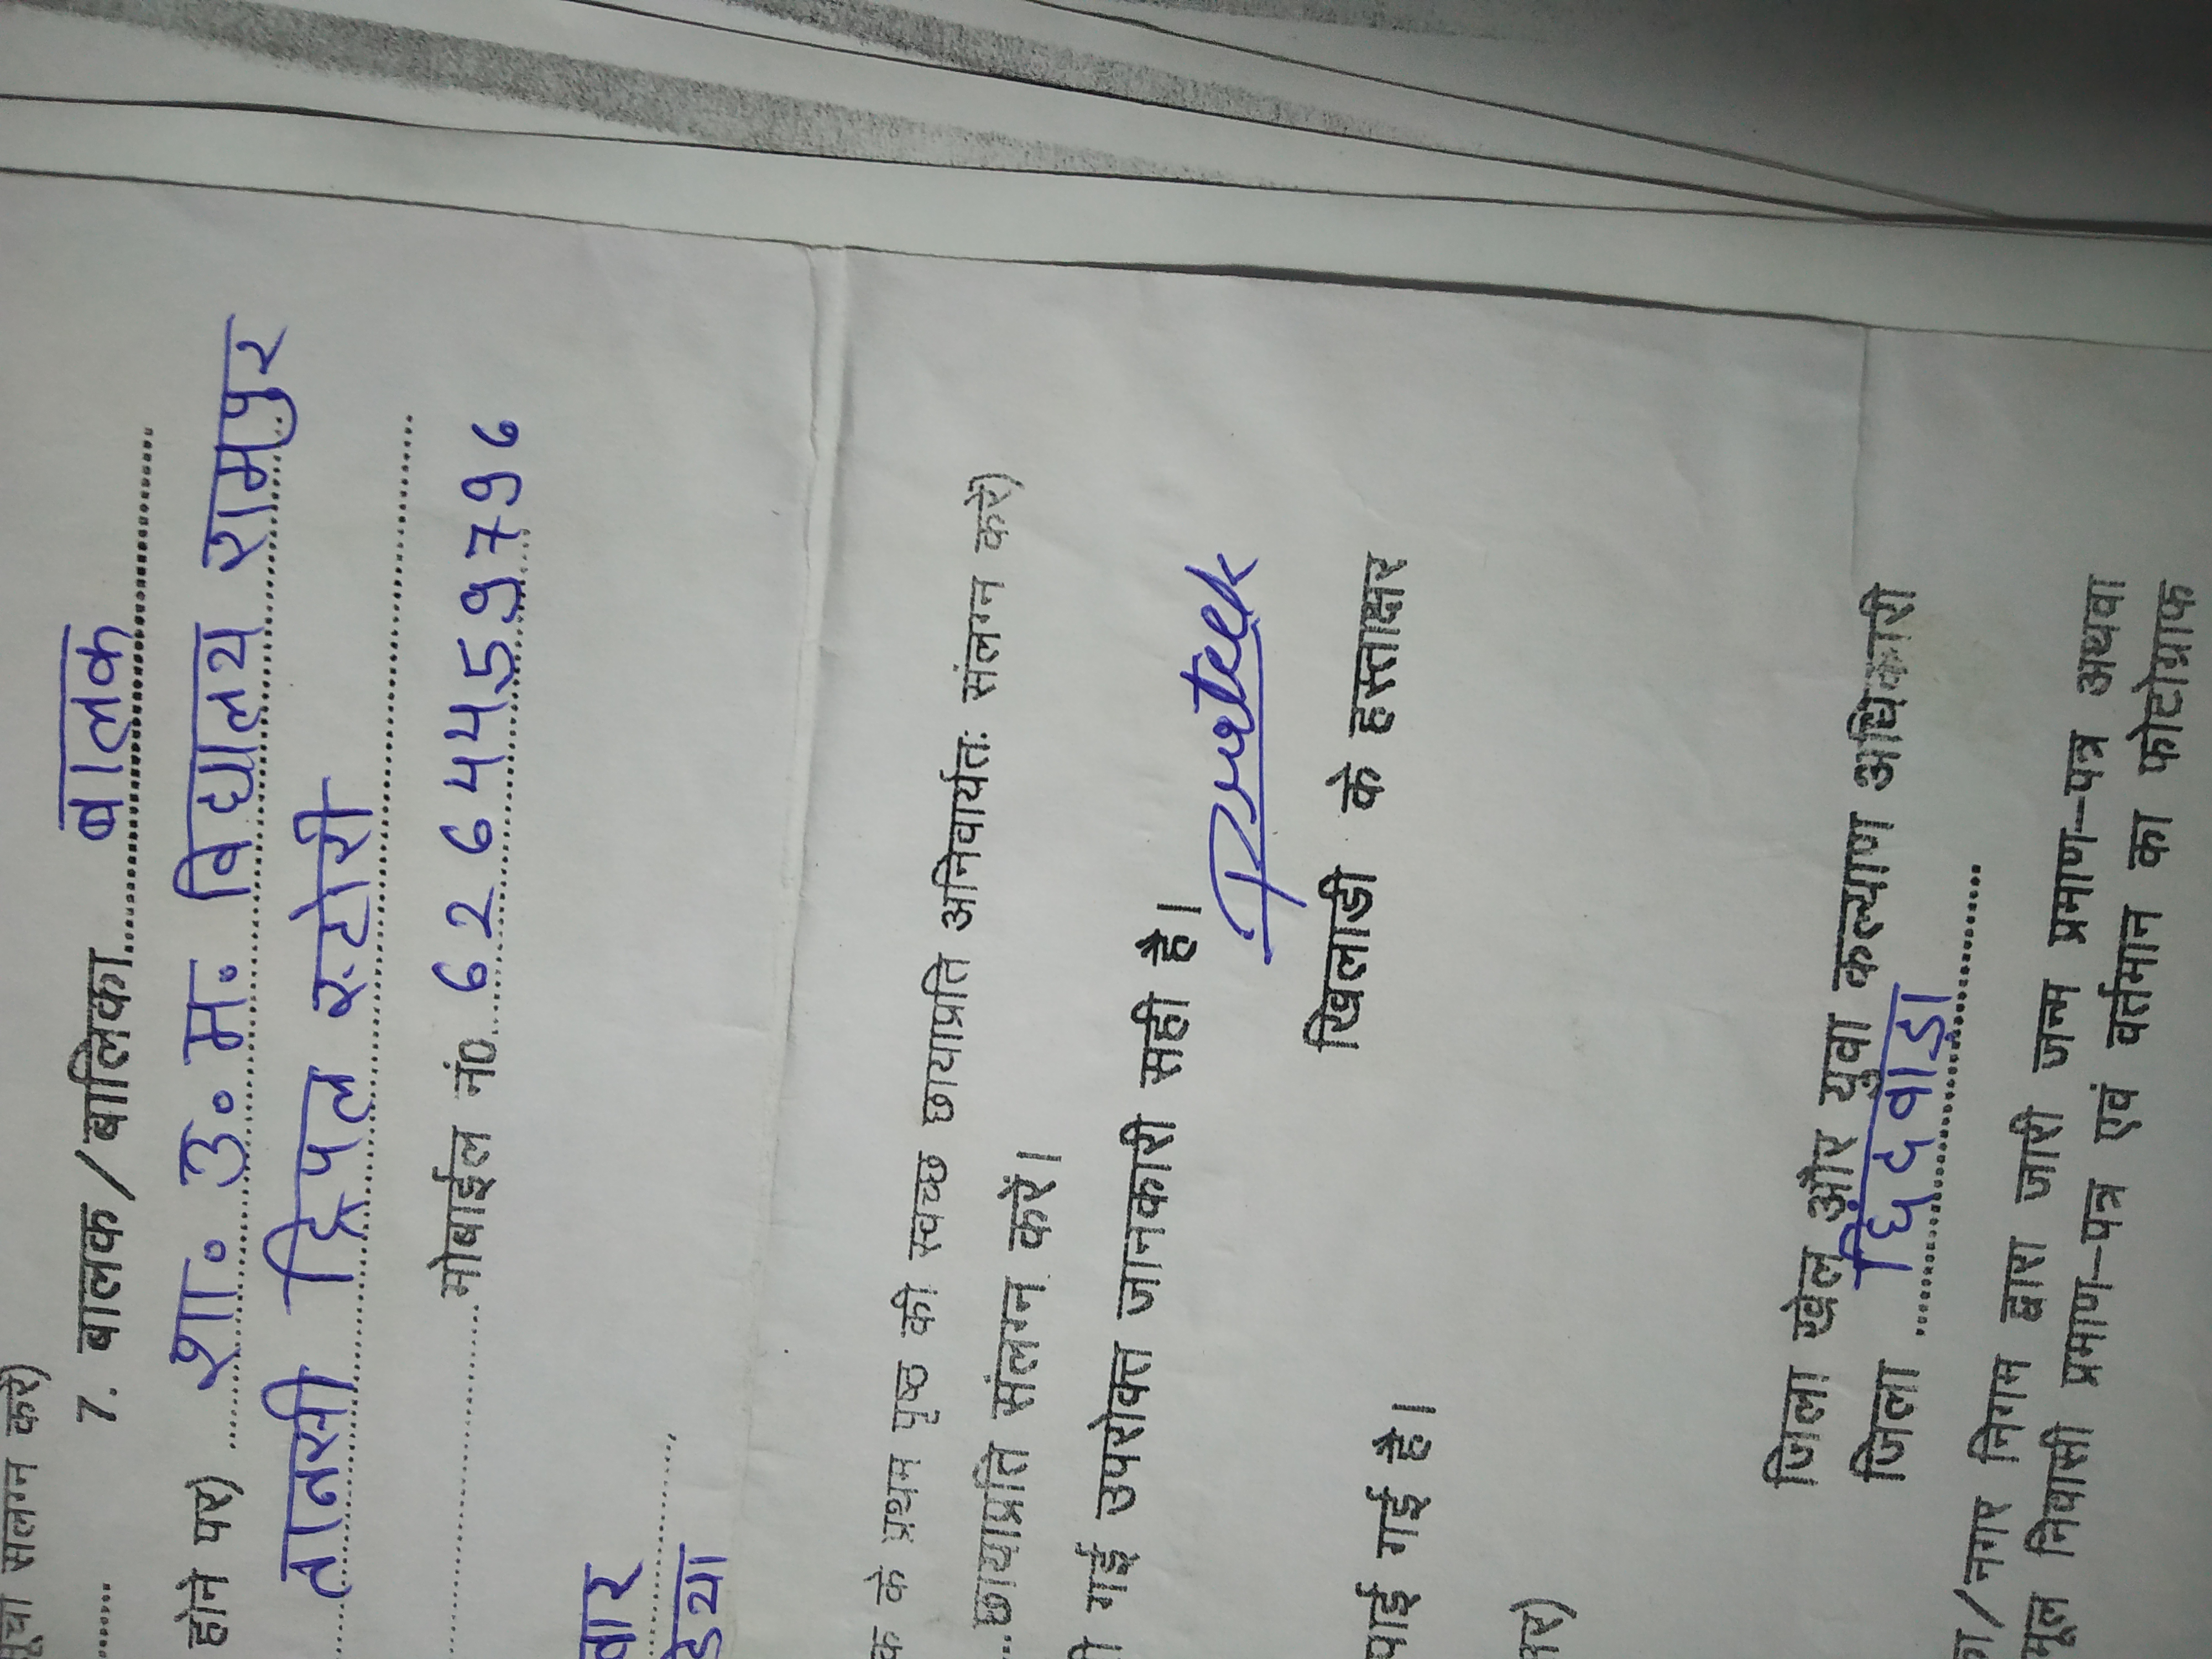 सलग्न करें)
7. बालक/बालिका बालक
होने पर) शा. उ. म. विद्यालय रामपुर
तानसी ट्रिपल स्टोरी
मोबाईल नं0 6264459796
वार
डिया
क के प्रथम पृष्ठ की स्वच्छ छायाप्रति अनिवार्यतः संलग्न करें)
छायाप्रति संलग्न करें।
गई उपरोक्त जानकारी सही है।
Prateek
खिलाडी के हस्ताक्षर
पाई गई है।
जिला खेल और युवा कल्याण अधिकारी
जिला छिंदवाड़ा
/नगर निगम द्वारा जारी जन्म प्रमाण-पत्र अथवा
मूल निवासी प्रमाण-पत्र एवं वर्तमान का फोटोग्राफ